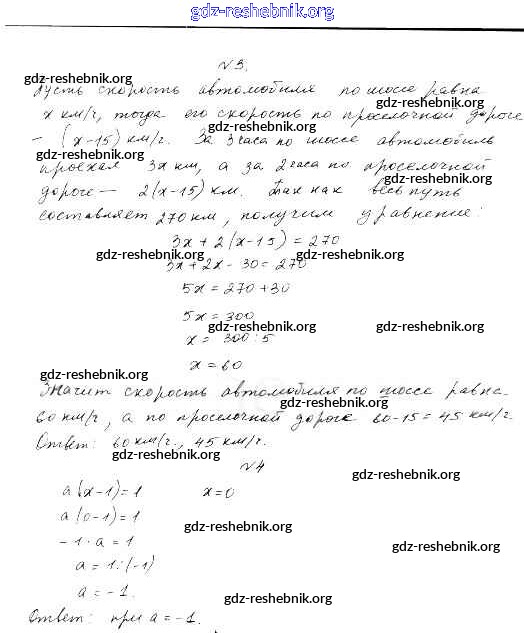 gdz-reshebnik.org
№3.
gdz-reshebnik.org
Пусть скорость автомобиля по шоссе равна
gdz-reshebnik.org
x км/ч, тогда его скорость по проселочной дороге
– (x-15) км/ч. За 3 часа по шоссе автомобиль
gdz-reshebnik.org
проехал 3x км, а за 2 часа по проселочной
gdz-reshebnik.org
дороге – 2(x-15) км. Так как весь путь
составляет 270 км, получим уравнение:
3x + 2(x-15) = 270
gdz-reshebnik.org gdz-reshebnik.org
3x + 2x - 30 = 270
5x = 270 + 30
5x = 300
gdz-reshebnik.org gdz-reshebnik.org
x = 300 : 5
x = 60
gdz-reshebnik.org
Значит скорость автомобиля по шоссе равна
gdz-reshebnik.org
60 км/ч, а по проселочной дороге 60-15 = 45 км/ч.
Ответ: 60 км/ч., 45 км/ч.
gdz-reshebnik.org
№4
gdz-reshebnik.org
a(x-1)=1 x=0
a(0-1)=1
gdz-reshebnik.org
-1·a=1
gdz-reshebnik.org
a=1:(-1)
a=-1.
gdz-reshebnik.org
Ответ: при a=-1.